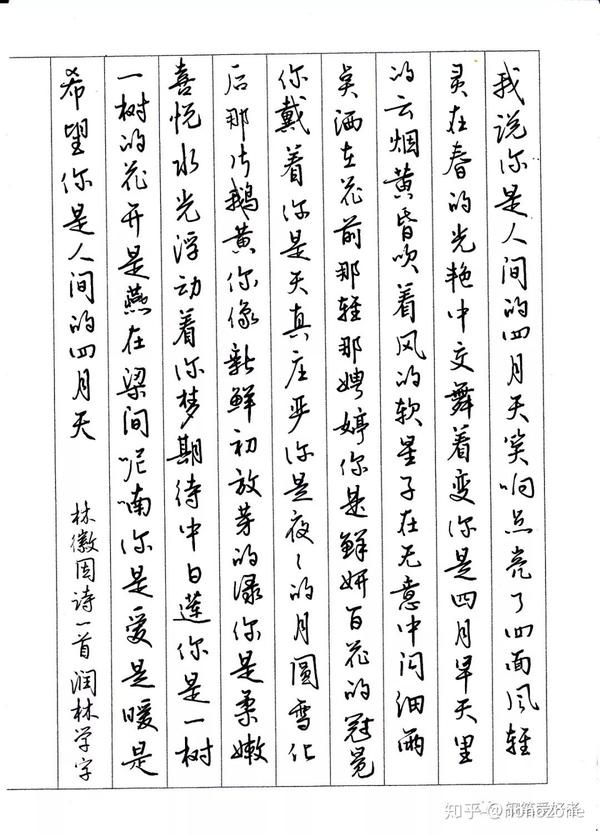 我说你是人间的四月天笑响点亮了四面风轻
灵在春的光艳中交舞着变你是四月早天里
的云烟黄昏吹着风的软星子在无意中闪细雨
点洒在花前那轻那娉婷你是鲜妍百花的冠冕
你戴着你是天真庄严你是夜々的月圓雪化
后那片鹅黄你像新鲜初放芽的绿你是柔嫩
喜悦水光浮动着你梦期待中白莲你是一树
一树的花开是燕在梁间呢喃你是爱是暖是
希望你是人间的四月天
林徽因诗一首 润林学字
知乎 @nonozone
钢笔爱好者